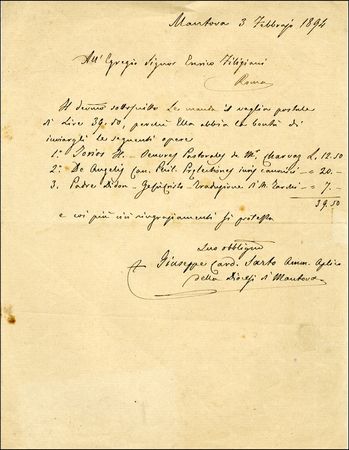 Mantova 3 Febbrajo 1894
All' Egregio Signor Enrico Filiziani
Roma
Il devmo sottoscritto Le manda il vaglia postale
di Lire 39.50, perchè Ella abbia la bontà di
inviargli le seguenti opere
1.° H. - Oeuvres Pastorales de Mr. Charvaz L. 12.50
2.° De Angelis Can. Phil. Praelectiones juris canonici = 20. -
3. Padre Didon - Gesù Cristo - Traduzione di = 7. -
39.50
e coi più vivi ringraziamenti si protesta
Suo obbligmo
Giuseppe Card. Sarto Amm. Aplico
della Diocesi di Mantova